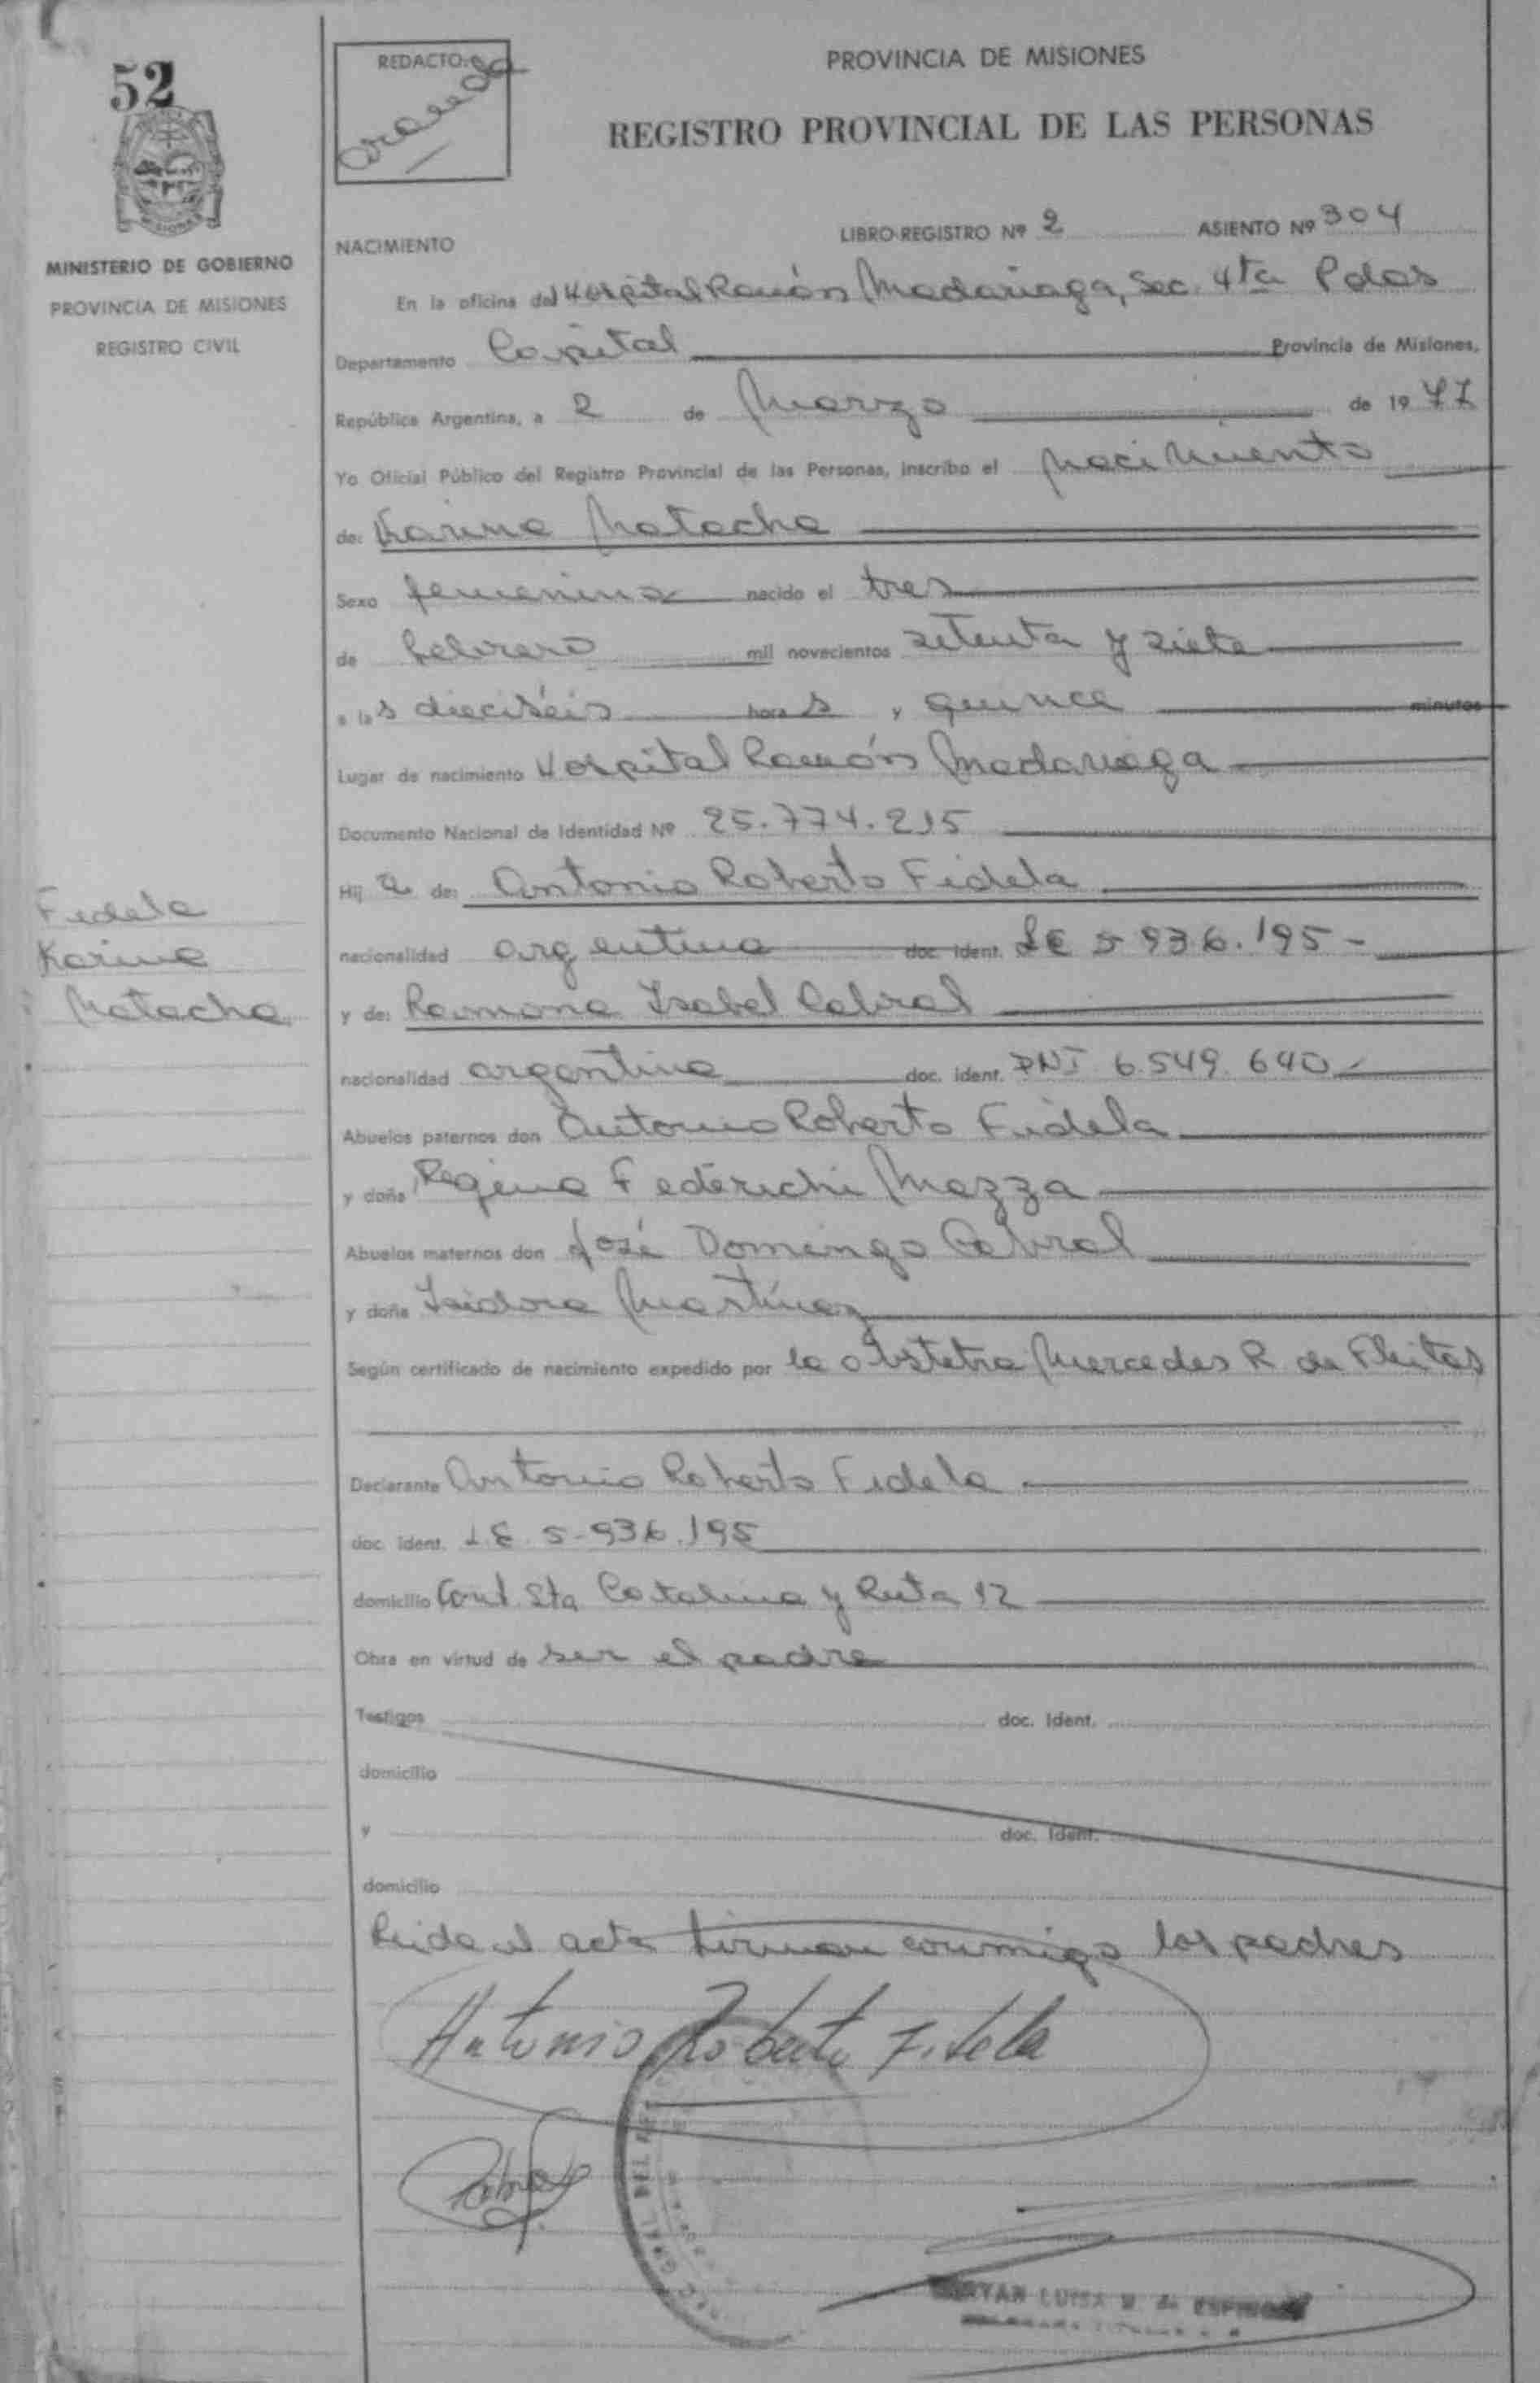 52
MINISTERIO DE GOBIERNO
PROVINCIA DE MISIONES
REGISTRO CIVIL
REDACTO:
PROVINCIA DE MISIONES
REGISTRO PROVINCIAL DE LAS PERSONAS
NACIMIENTO
LIBRO-REGISTRO Nº 2 ASIENTO Nº 304
En la oficina del Hospital Ramón Madariaga, Sec. 4ta Pdas
Departamento Capital Provincia de Misiones,
República Argentina, a 2 de Marzo de 1977
Yo Oficial Público del Registro Provincial de las Personas, inscribo el Nacimiento
de: Karina Natacha
Sexo femenino nacido el tres
de febrero mil novecientos setenta y siete
a las dieciséis horas y quince minutos
Lugar de nacimiento Hospital Ramón Madariaga
Documento Nacional de Identidad Nº 25.774.215
Hija de: Antonio Roberto Fidela
nacionalidad argentina doc. ident. LE 5 936.195-
y de: Ramona Isabel Cabral
nacionalidad argentina doc. ident. DNI 6.549.640-
Abuelos paternos don Antonio Roberto Fidela
y doña Regina Federichi Mazza
Abuelos maternos don José Domingo Cabral
y doña Isidora Martínez
Según certificado de nacimiento expedido por la obstetra Mercedes R de Fleitas
Declarante Antonio Roberto Fidela
doc. ident. LE 5-936.195
domicilio Sta Catalina y Ruta 12
Obra en virtud de ser el padre
Testigos doc. ident.
domicilio
y doc. ident.
domicilio
Leida el acta firman conmigo los padres
Antonio Roberto Fidela
LUISA
Fidela
Karina
Natacha